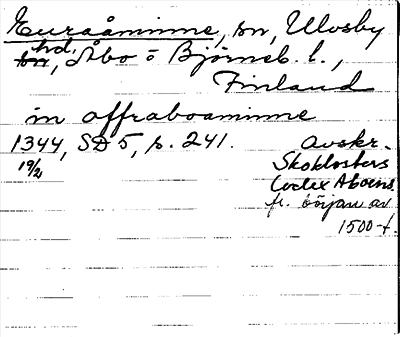 Euraåminne, sn, Ulvsby
hd, Åbo o Björneb. l.,
Finland
in affraboaminne
1344, SD 5, s. 241. avskr.
19/2 Skoklosters
Codex Aboens.
fr. början av
1500-t.